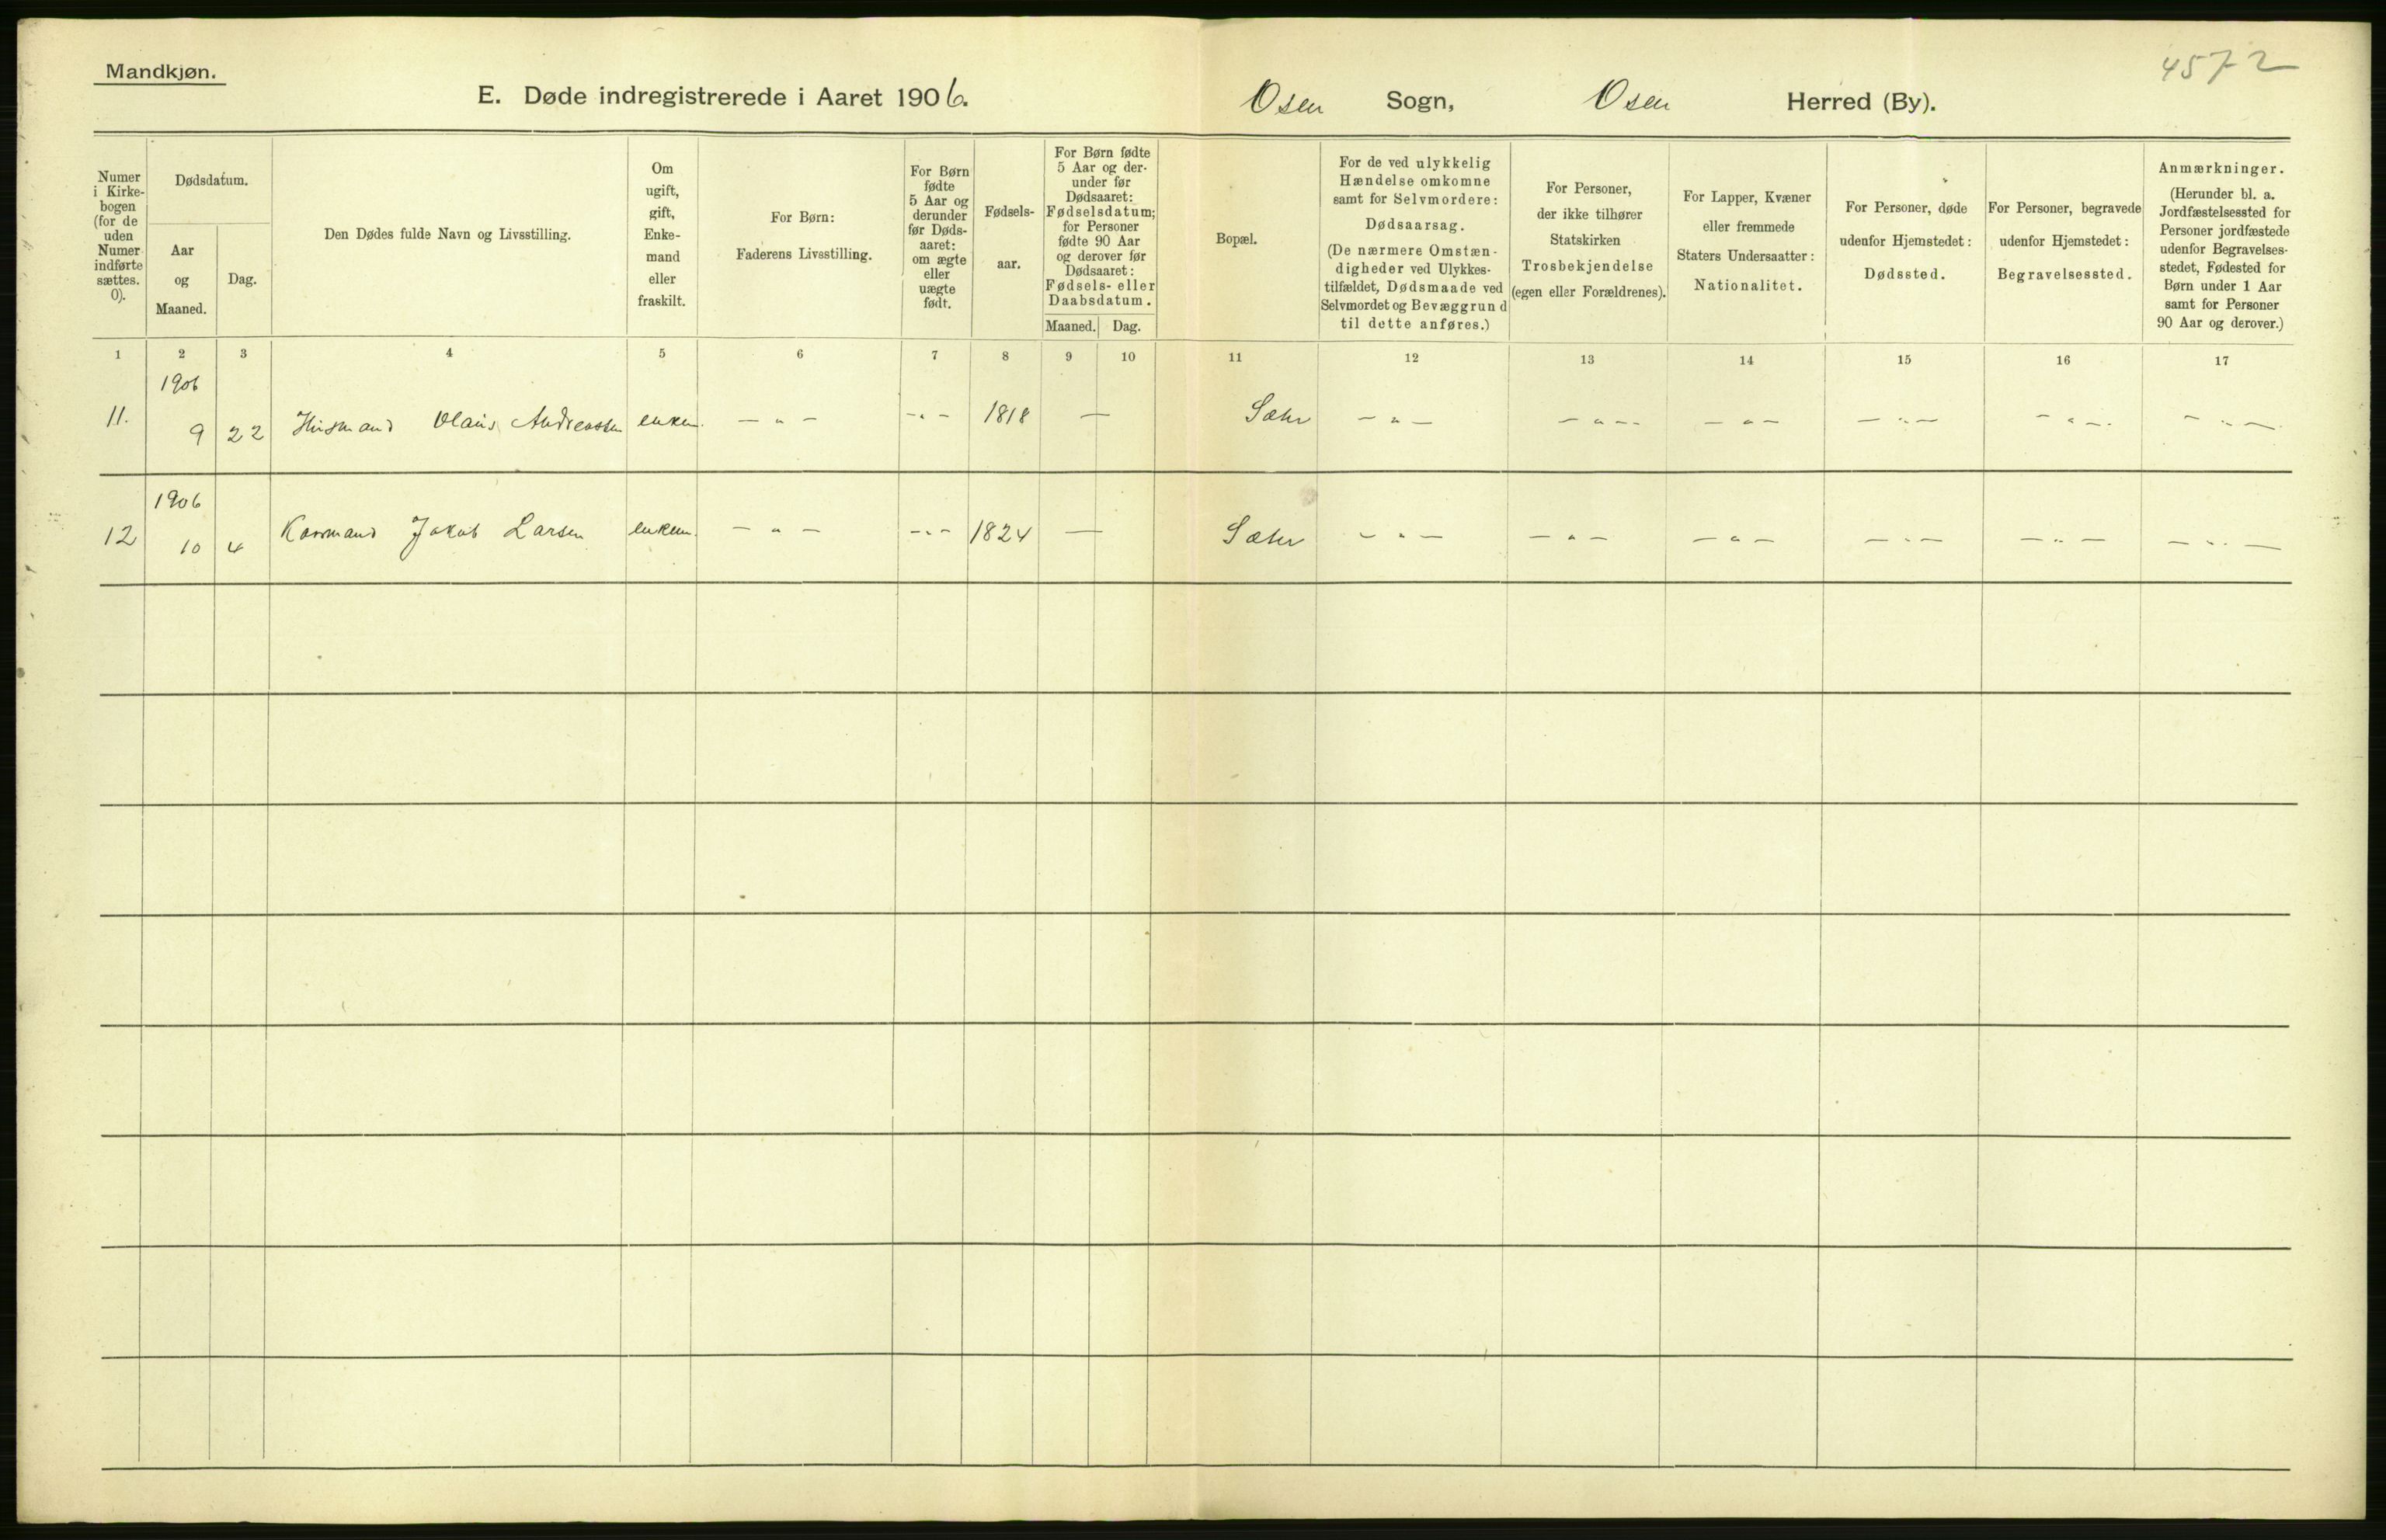 Mandkjøn.
4572
E. Døde indregistrerede i Aaret 1906. Osen Sogn, Osen Herred (By).
Numer i Kirke-bogen (for de uden Numer indførte sættes. 0).
Dødsdatum.
Aar og Maaned.
Dag.
Den Dødes fulde Navn og Livsstilling.
Om ugift, gift, Enke-mand eller fraskilt.
For Børn: Faderens Livsstilling.
For Børn fødte 5 Aar og derunder før Døds-aaret: om ægte eller uægte født.
Fødsels-aar.
For Børn fødte 5 Aar og der-under før Dødsaaret: Fødselsdatum; for Personer fødte 90 Aar og derover før Dødsaaret: Fødsels- eller Daabsdatum.
Maaned. Dag.
Bopæl.
For de ved ulykkelig Hændelse omkomne samt for Selvmordere: Dødsaarsag. (De nærmere Omstæn-digheder ved Ulykkes-tilfældet, Dødsmaade ved Selvmordet og Bevæggrund til dette anføres.)
For Personer, der ikke tilhører Statskirken Trosbekjendelse (egen eller Forældrenes).
For Lapper, Kvæner eller fremmede Staters Undersaatter: Nationalitet.
For Personer, døde udenfor Hjemstedet: Dødssted.
For Personer, begravede udenfor Hjemstedet: Begravelsessted.
Anmærkninger. (Herunder bl. a. Jordfæstelsessted for Personer jordfæstede udenfor Begravelses-stedet, Fødested for Børn under 1 Aar samt for Personer 90 Aar og derover.)
1 2 3 4 5 6 7 8 9 10 11 12 13 14 15 16 17
1906
11. 9 22 Husmand Olaus Andreassen enkem. - " - - " - 1818 — Sæter - " - - " - - " - - " - - " - - " -
1906
12 10 4 Kaarmand Jakob Larsen enkem. - " - - " - 1824 — Sæter - " - - " - - " - - " - - " - - " -